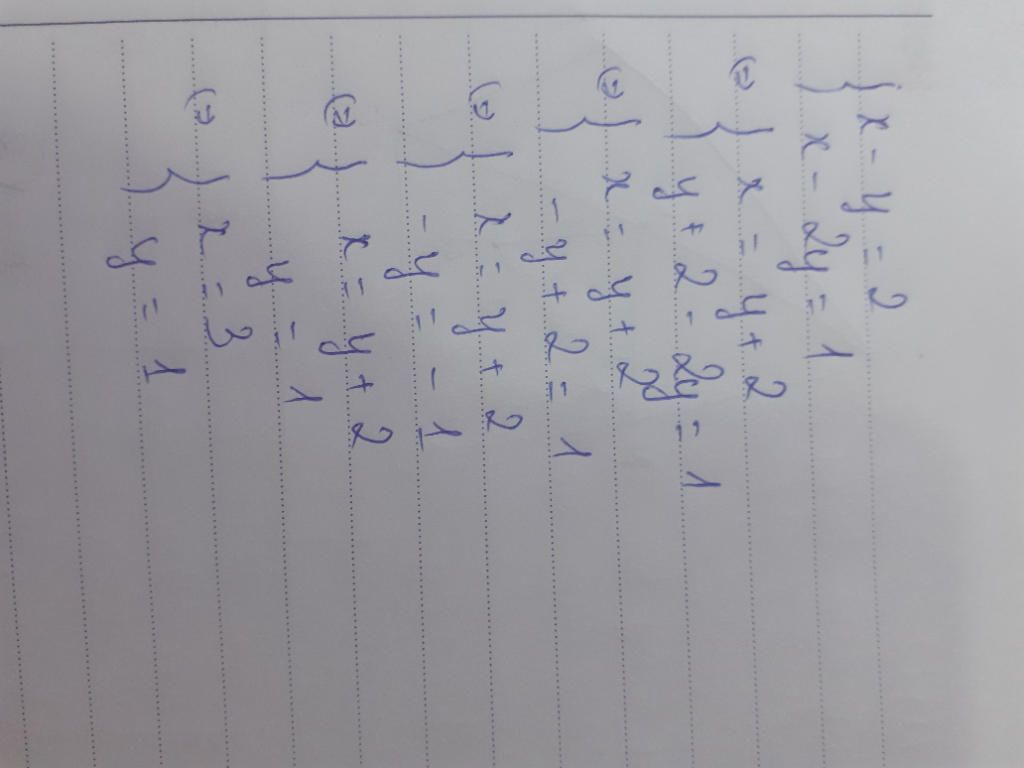 { x - y = 2
x - 2y = 1
⇔ { x = y + 2
y + 2 - 2y = 1
⇔ { x = y + 2
- y + 2 = 1
⇔ { x = y + 2
- y = - 1
⇔ { x = y + 2
y = 1
⇔ { x = 3
y = 1